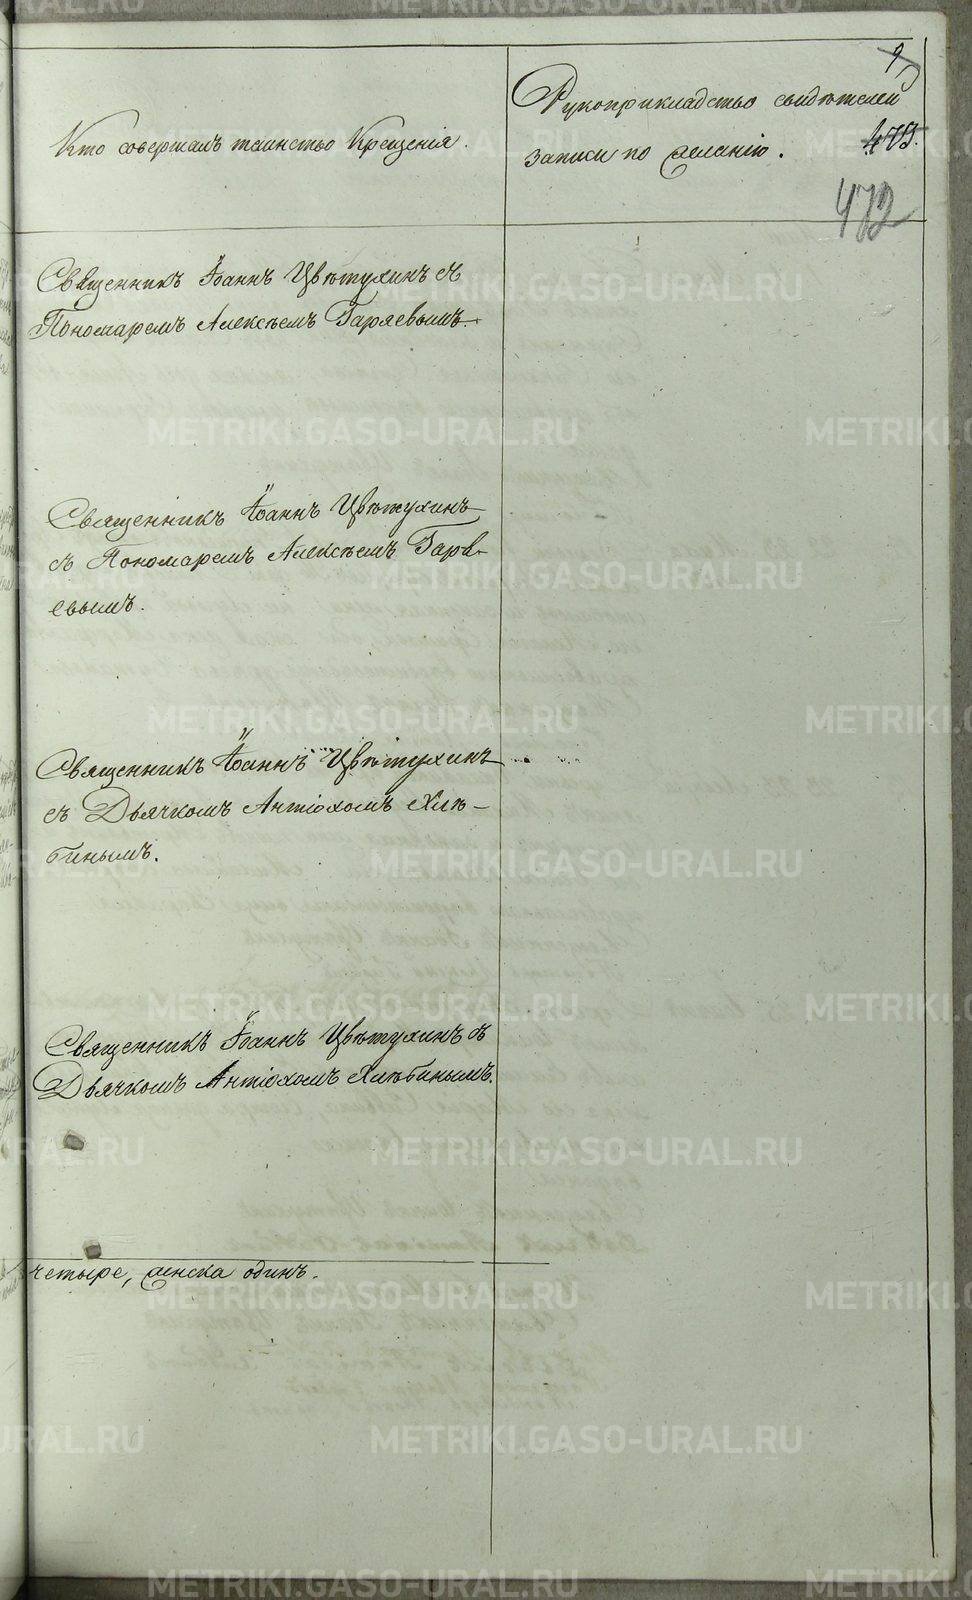 9
Кто совершалъ таинство Крещенія.
Рукоприкладство свидѣтелей
записи по желанію.
473.
472
Священникъ Іоаннъ Цвѣтухинъ съ
Пономаремъ Алексѣемъ Гаряевымъ.
Священникъ Іоаннъ Цвѣтухинъ
съ Пономаремъ Алексѣемъ Гаря-
евымъ.
Священникъ Іоаннъ Цвѣтухинъ
съ Дьячкомъ Антіохомъ Хлѣ-
бинымъ.
Священникъ Іоаннъ Цвѣтухинъ съ
Дьячкомъ Антіохомъ Хлѣбинымъ.
четыре, женска одинъ.
METRIKI.GASO-URAL.RU